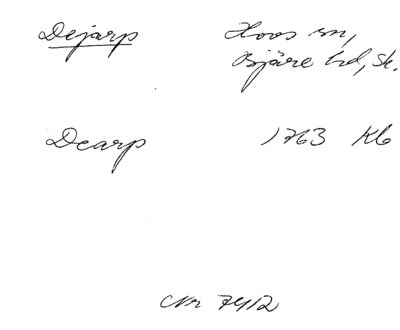 Dejarp Hovs sn,
Bjäre hd, Sk.
Dearp 1763 Kb
Nr 7412